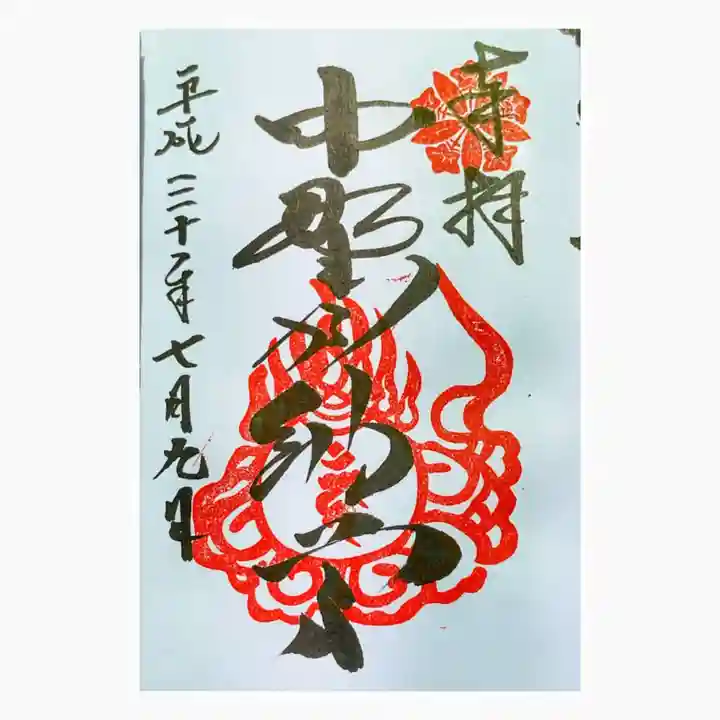 奉拝
中野不動尊
平成三十年七月九日